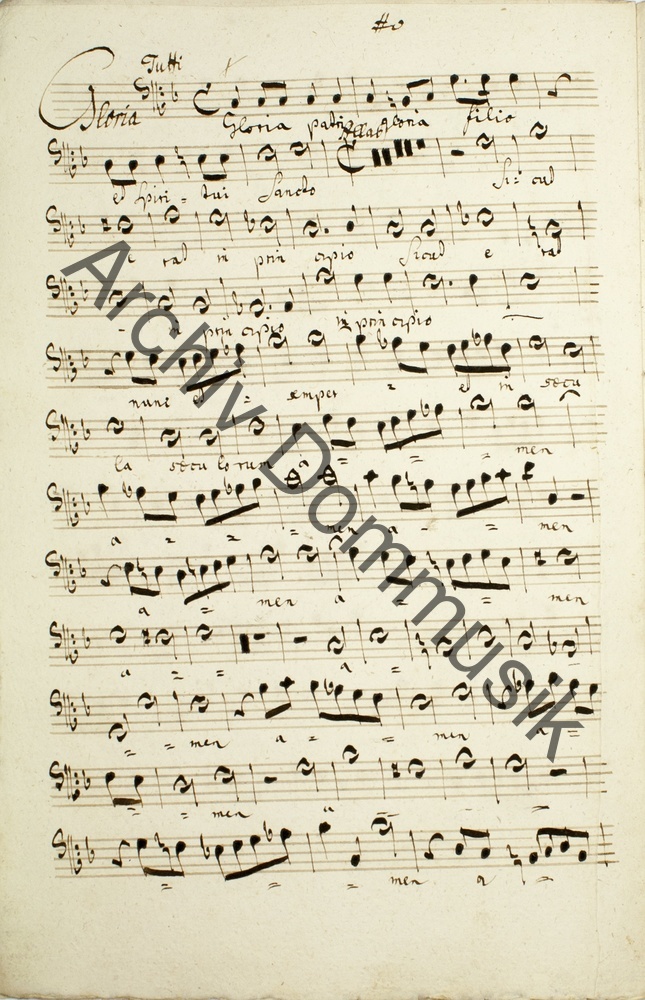 Tutti
Gloria
Gloria patri gloria filio
et Spiri = tui Sancto Si = cut
e rat in prin cipio Sicut e rat
- in prin cipio in prin cipio
nunc et = semper = et in secu
la secu lorum a = = = men
a = = men a - = men
a = men a = = men
a = = a =
= = men a = = men a =
= = men a = = =
= = = men a =
Archiv Dommusik